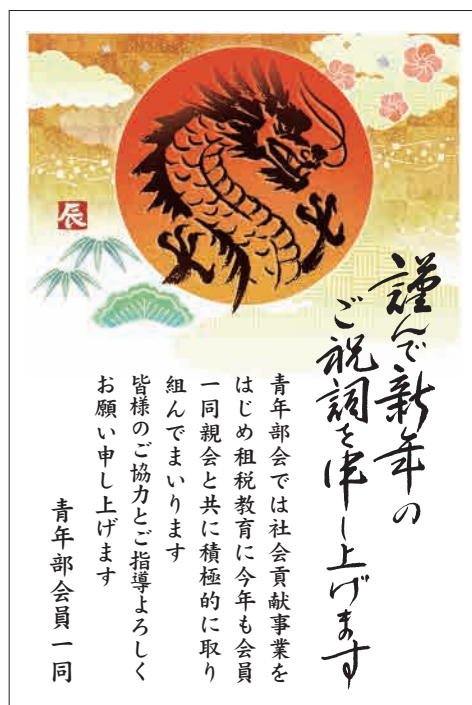 謹んで新年の
ご祝詞を申し上げます
青年部会では社会貢献事業を
はじめ租税教育に今年も会員
一同親会と共に積極的に取り
組んでまいります
皆様のご協力とご指導よろしく
お願い申し上げます
青年部会員一同
辰